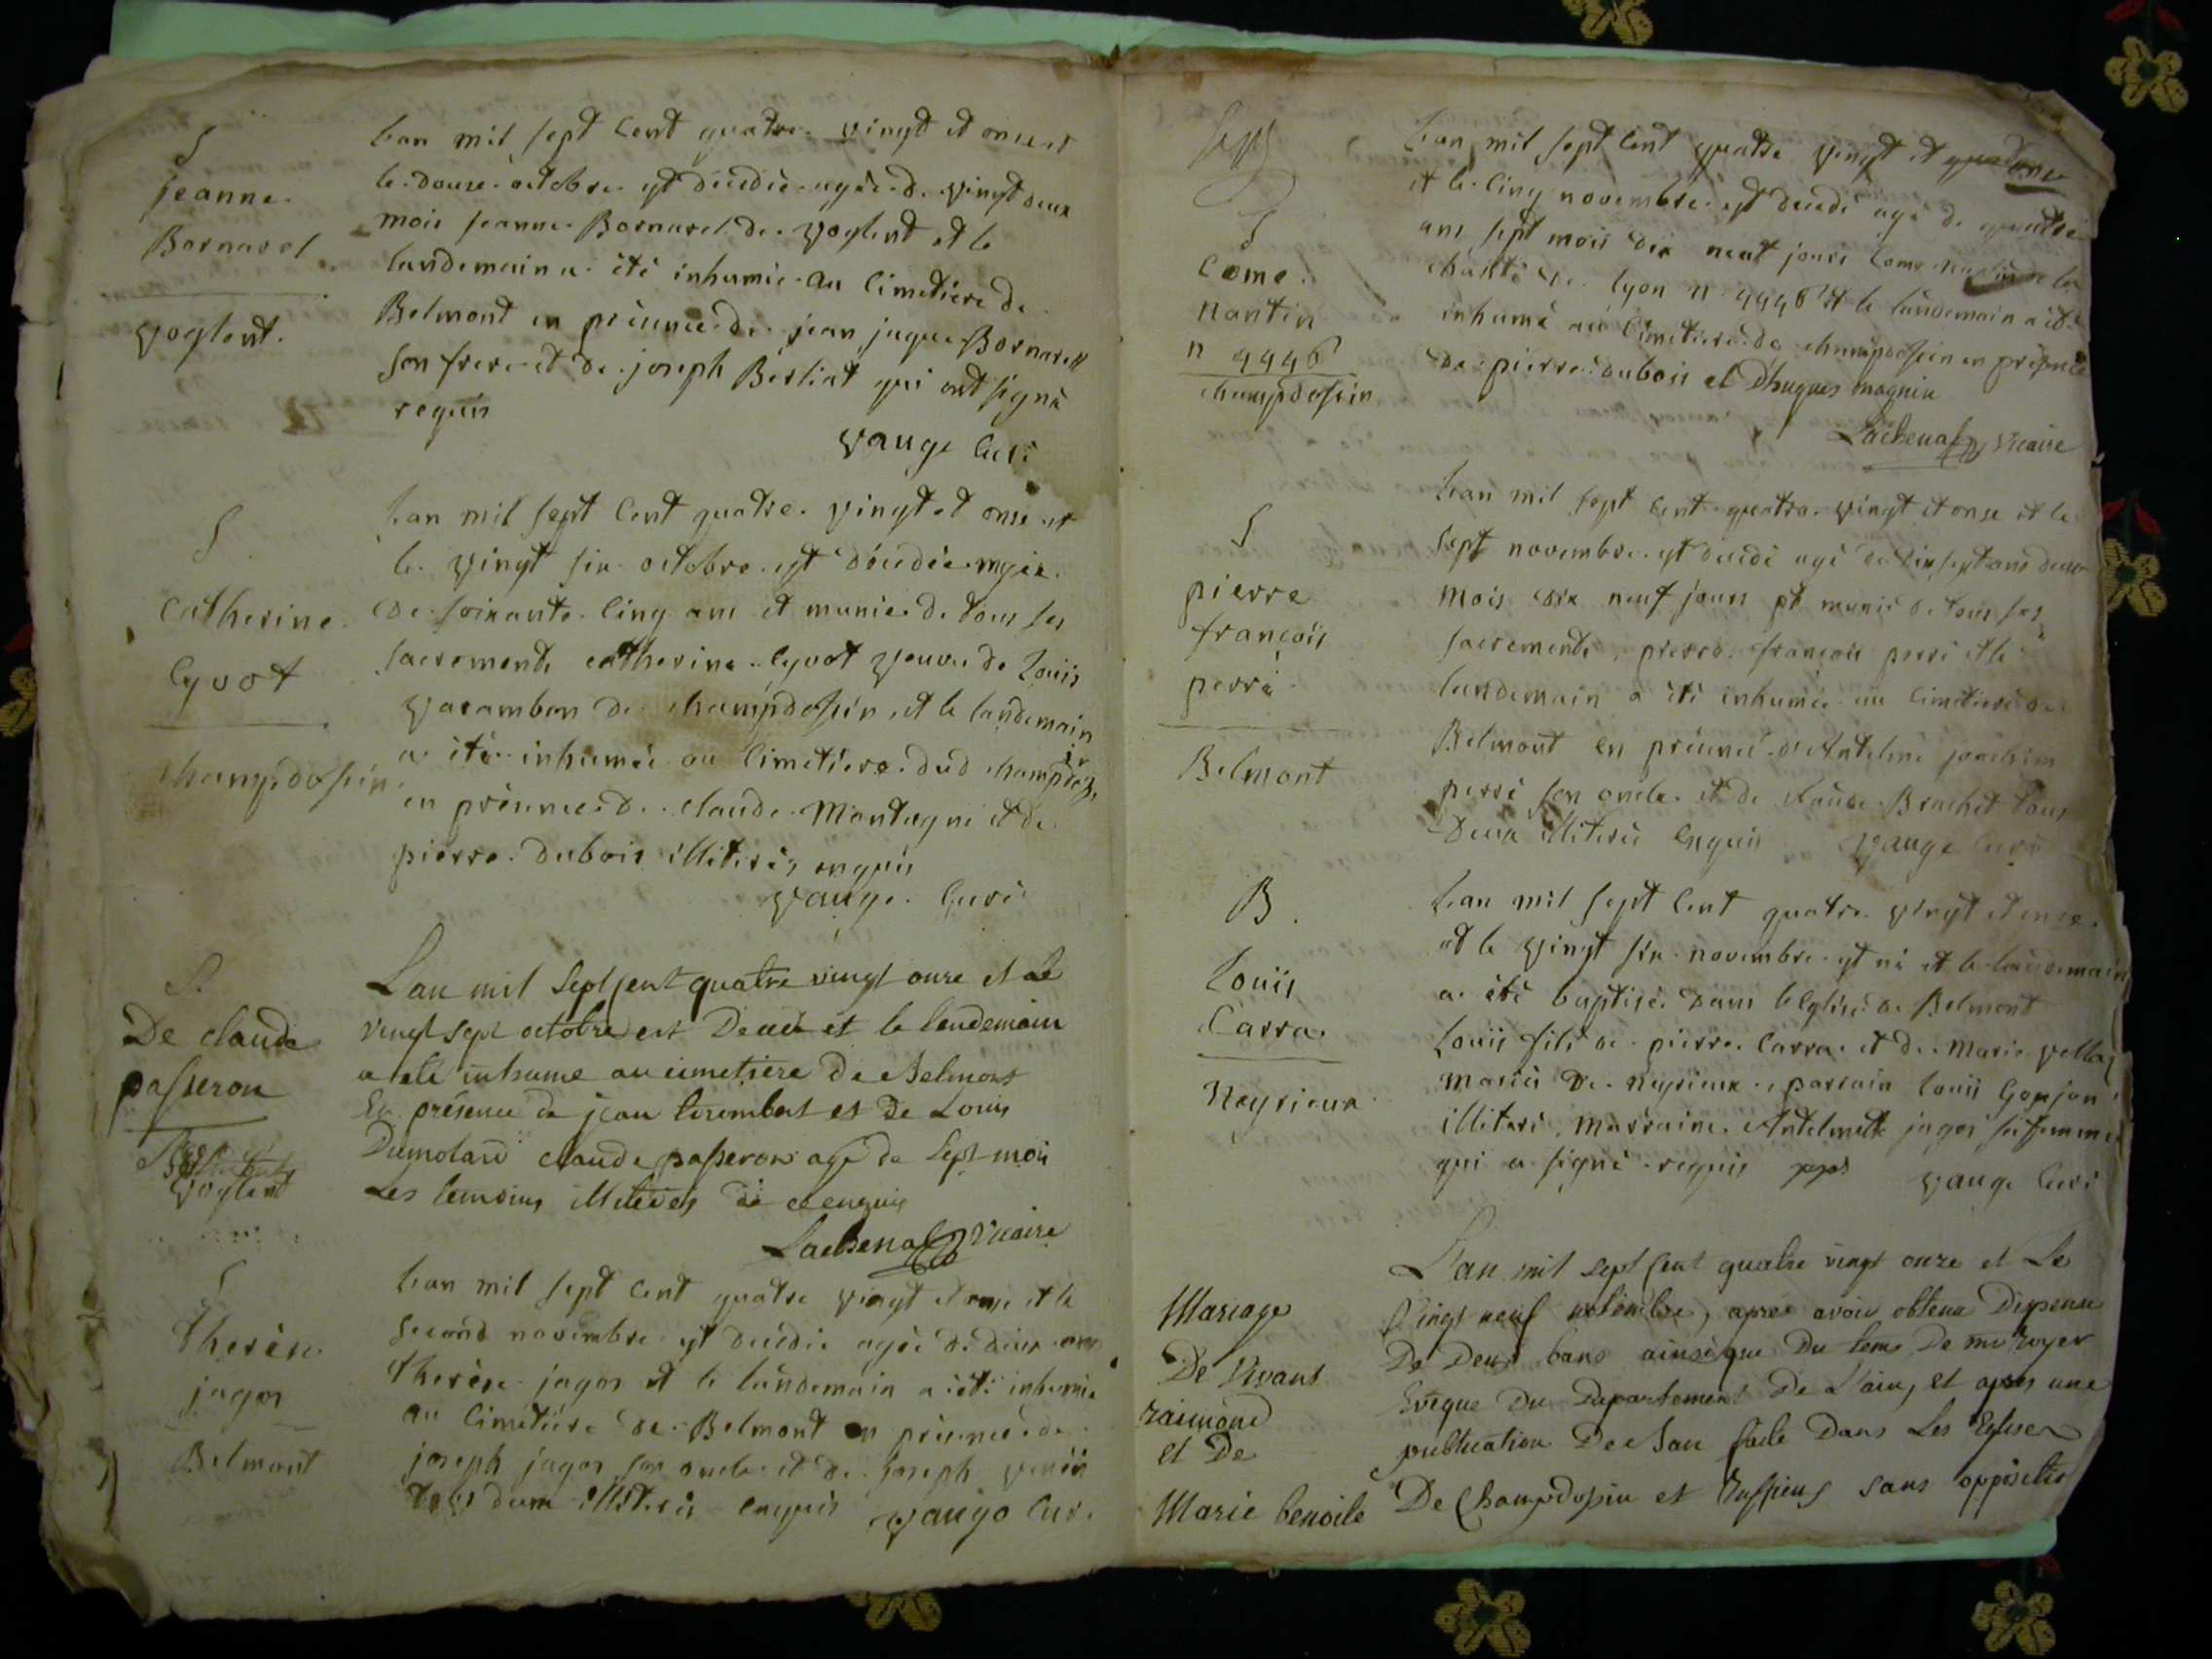 S
jeanne
Bornarel
voglent.
Lan mil sept cent quatre vingt et onse et
le douse octobre est décédée agée de vingt deux
mois jeanne Bornarel de voglent et le
landemain a été inhumée au Cimetiere de
Belmont en présence de jean jaque Bornarel
son frere et de joseph Berliat qui ont signé
requis
vauge Curé
S
Catherine
Cyvot
champdossin
Lan mil sept Cent quatre vingt et onse et
le vingt six octobre est décédée agée
de soixante Cinq ans et munie de tous ses
sacrements catherine Cyvot veuve de Louis
varambon de champdossin et le landemain
a été inhumée au Cimetiere dud champdosin
en présence de claude Montagni et de
pierre dubois illiterés enquis
vauge Curé
S.
De claude
passeron
voglent
Lan mil Sept Cent quatre vingt onze et Le
vingt sept octobre est Decedé et le lendemain
a eté inhumé au cimetiere De Belmont
En présence de jean Corombert et De Louis
Dumolard claude passeron agé de Sept mois
Les temoins illiterés de ce enquis
Lachenal Vicaire
S
therèse
jagos
Belmont
Lan mil sept Cent quatre vingt et onse et le
second novembre est décédée agée de deux ans
therèse jagos et le landemain a été inhumée
au Cimetiére de Belmont en présence de
joseph jagos son oncle et de joseph
tous deux illiterés enquis vauge Curé
S
Come
nantin
n 4446
champdossin
Lan mil sept Cent quatre vingt et onse
et le Cinq novembre est décédé agé de quatre
ans sept mois dix neuf jours Come nantin de la
charité de lyon n 4446 et le landemain a été
inhumé au Cimetiere de champdossin en présence
de pierre dubois et D'hugues magnin
Lachenal Vicaire
S
pierre
françois
perré
Belmont
Lan mil sept Cent quatre vingt et onse et le
sept novembre est décédé agé de dix sept ans deux
mois dix neuf jours et munie de tous ses
sacrements, pierre françois perré et le
landemain a été inhumée au Cimetiere de
Belmont en présence d'Antelme joachim
perré son oncle et de claude Brachet tous
Deux illiterés Enquis vauge Curé
B.
Louis
Carra
Neyrieux
Lan mil sept Cent quatre vingt et onze
et le vingt six novembre est né et le landemain
a été baptisé dans l'eglise de Belmont
Louis fils de pierre Carra et de Marie vella
mariés de neyrieux, parrain Louis Goujon
illiteré, marraine Antelmette jagos sa femme
qui a signé requis vauge Curé
Mariage
De Vivant
raimond
et De
Marie benoite
L'an mil sept Cent quatre vingt onze et Le
Vingt neuf novembre, après avoir obtenu Dispense
De Deux bans ainsi que Du tems De mr royer
Evêque Du Departement De L'ain, et après une
publication De Ban faite Dans Les Eglises
De Champdossin et Ruffieu sans opposition